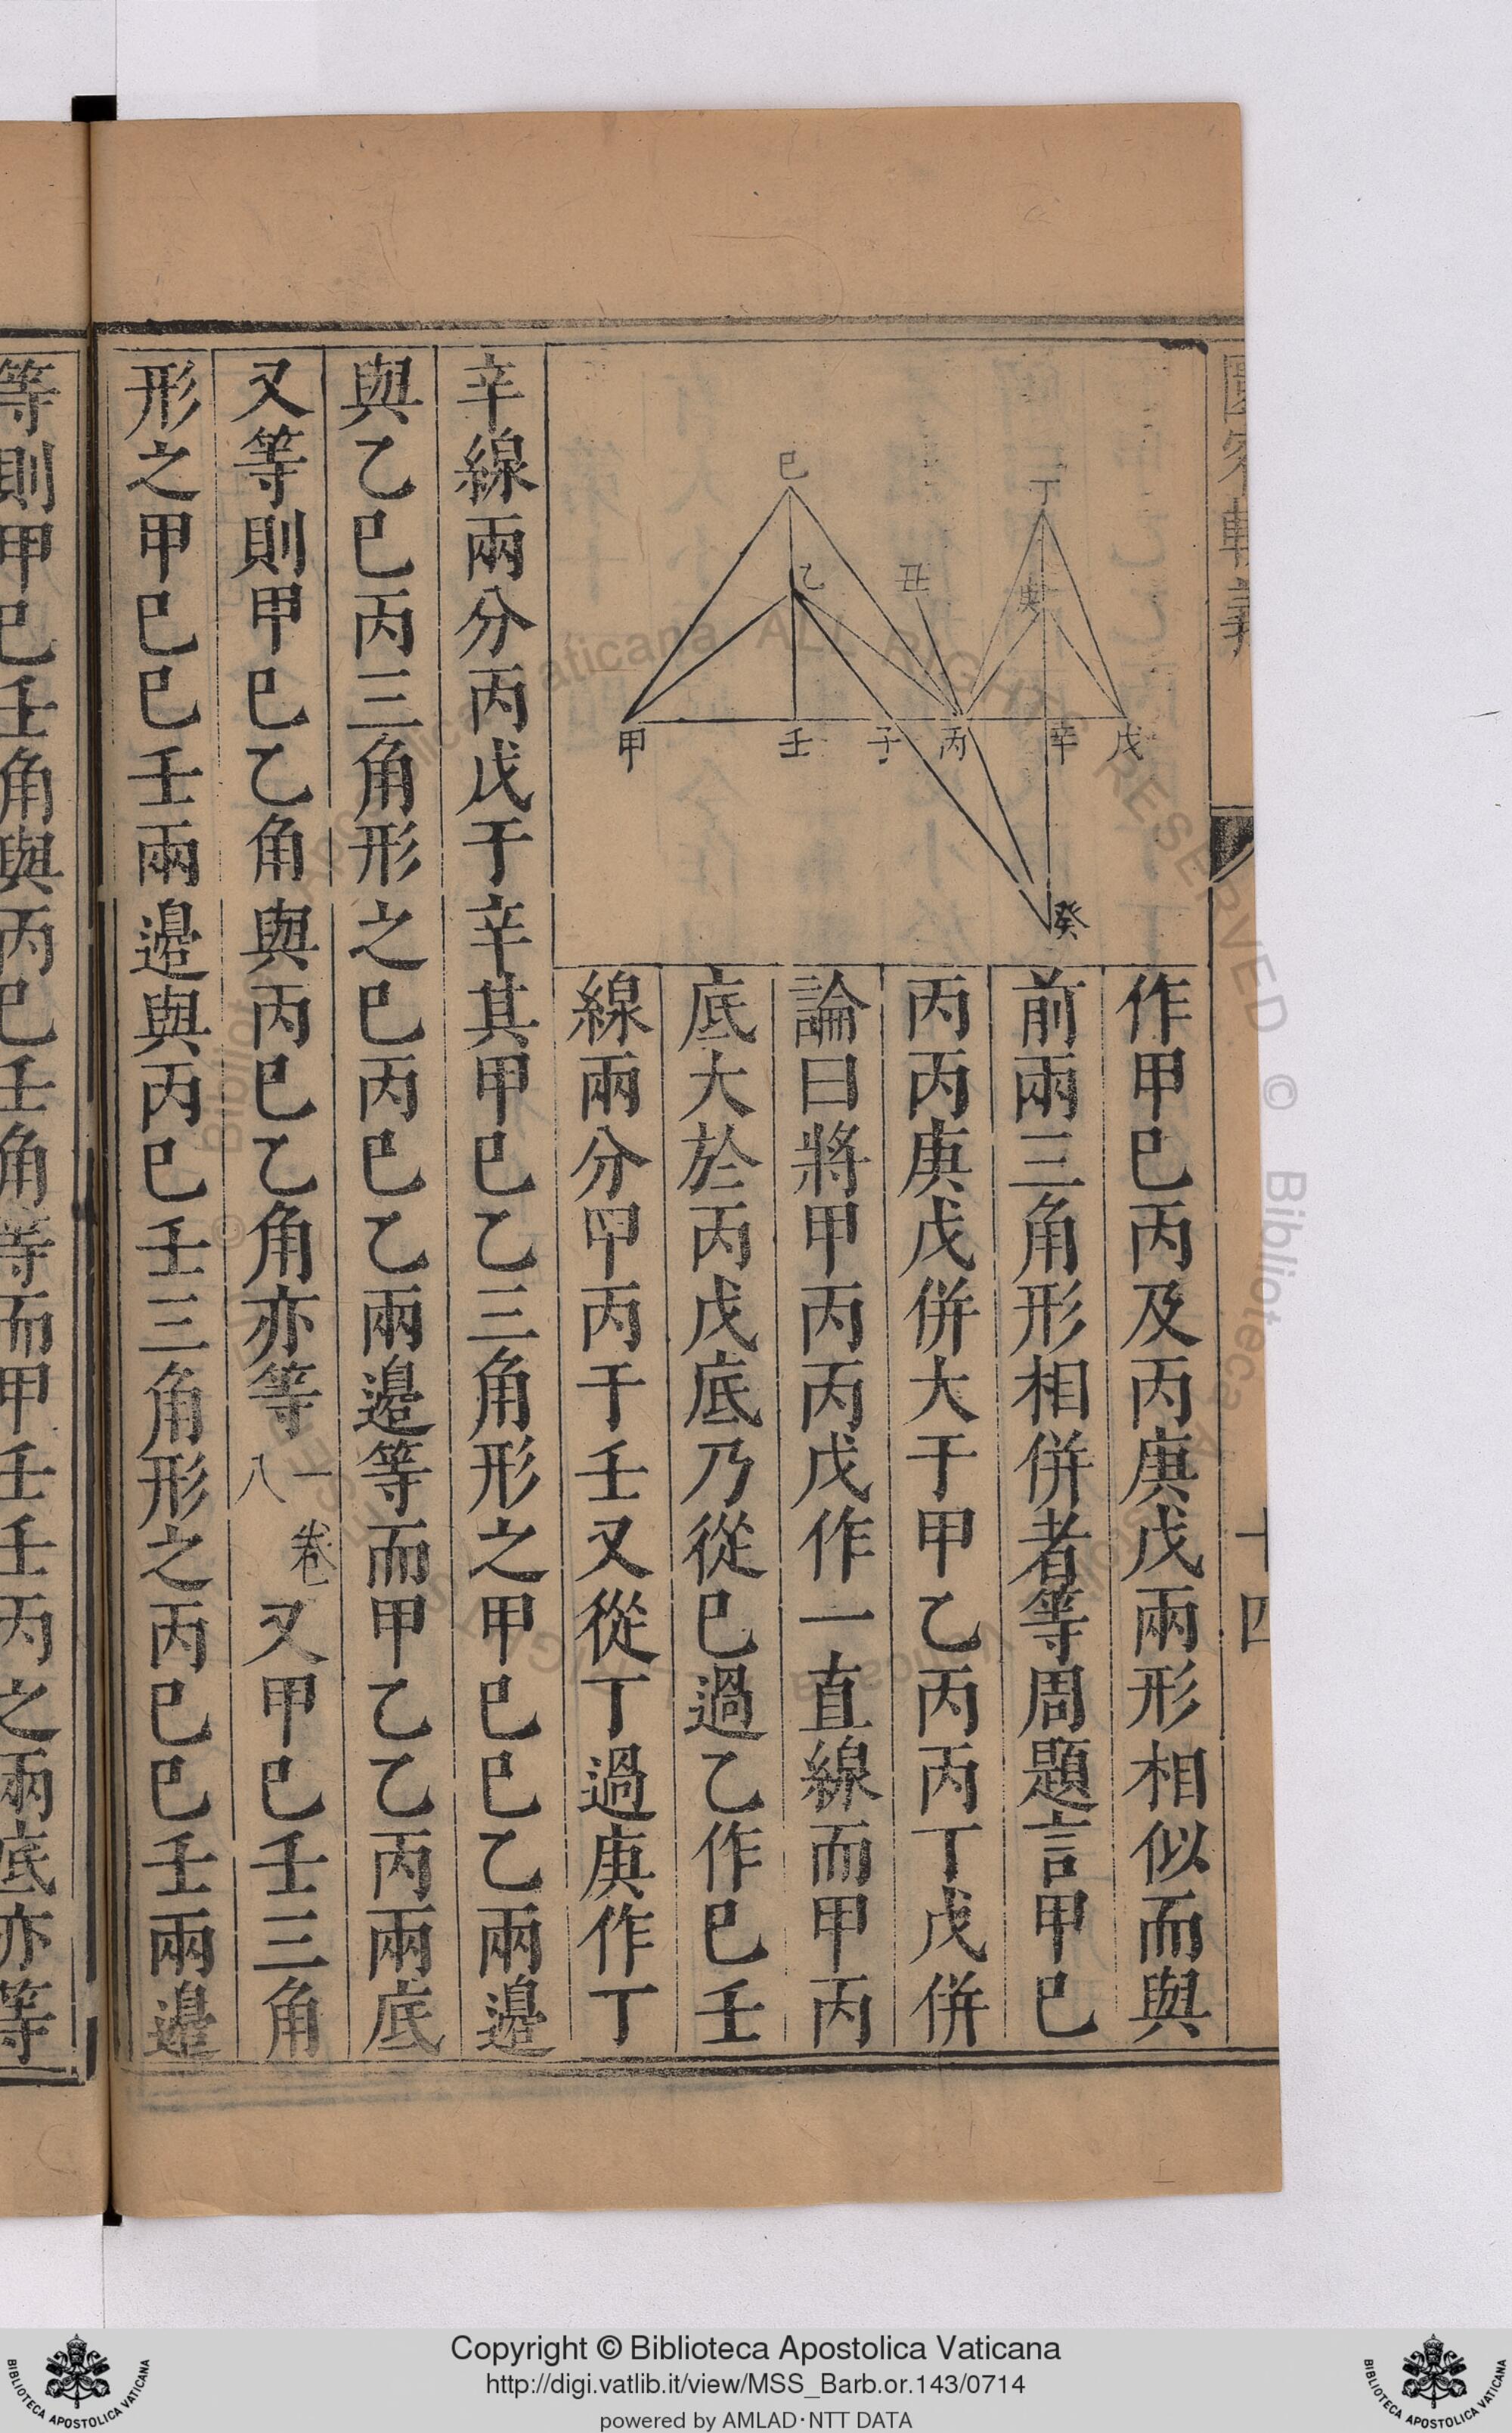 圜容較義
十四
丁
巳
丑
乙
庚
甲
壬
子
丙
辛
戊
癸
作甲巳丙及丙庚戊兩形相似而與
前兩三角形相併者等周題言甲巳
丙丙庚戊併大于甲乙丙丙丁戊併
論曰將甲丙丙戊作一直線而甲丙
底大於丙戊底乃從巳過乙作巳壬
線兩分甲丙于壬又從丁過庚作丁
辛線兩分丙戊于辛其甲巳乙三角形之甲巳巳乙兩邊
與乙巳丙三角形之巳丙巳乙兩邊等而甲乙乙丙兩底
又等則甲巳乙角與丙巳乙角亦等一卷八又甲巳壬三角
形之甲巳巳壬兩邊與丙巳壬三角形之丙巳巳壬兩邊
等則甲巳壬角與丙巳壬角等而甲壬壬丙之兩底亦等
Copyright © Biblioteca Apostolica Vaticana
http://digi.vatlib.it/view/MSS_Barb.or.143/0714
powered by AMLAD·NTT DATA
BIBLIOTECA APOSTOLICA VATICANA
BIBLIOTECA APOSTOLICA VATICANA